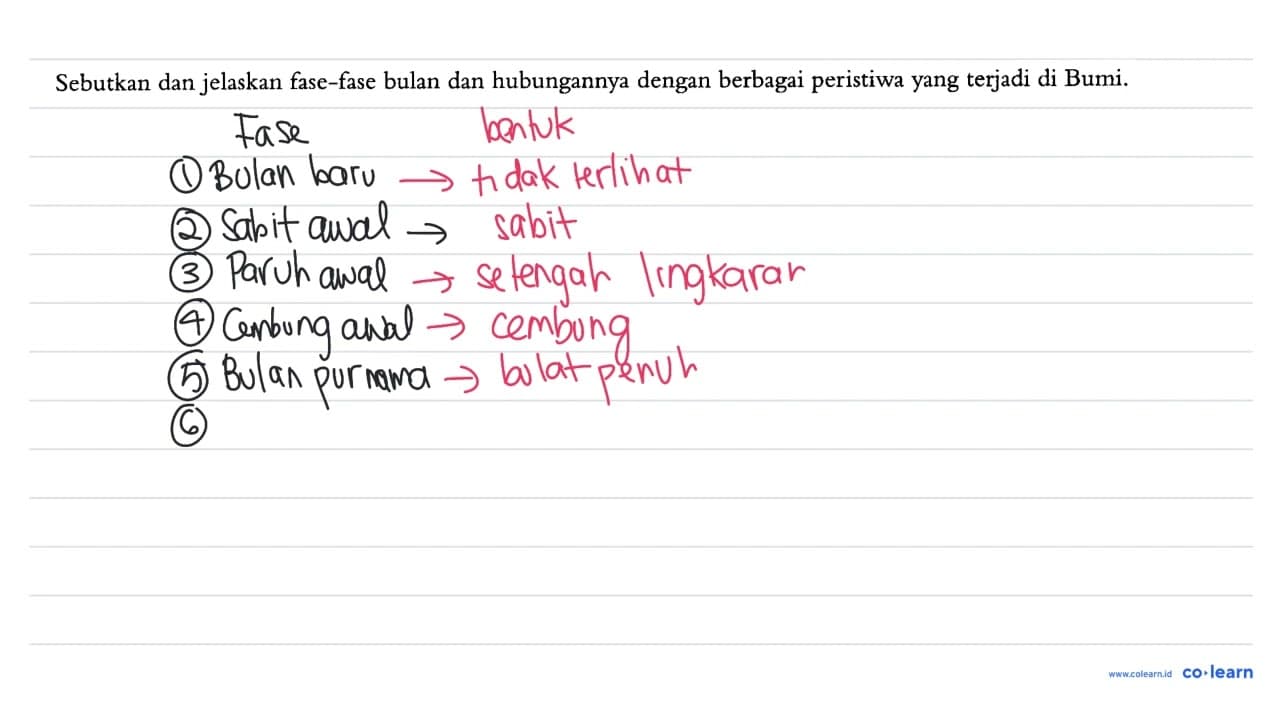 Sebutkan dan jelaskan fase-fase bulan dan hubungannya dengan berbagai peristiwa yang terjadi di Bumi.
Fase bentuk
① Bulan baru → tidak terlihat
② Sabit awal → sabit
③ Paruh awal → setengah lingkaran
④ Cembung awal → cembung
⑤ Bulan purnama → bulat penuh
⑥
www.colearn.id co·learn